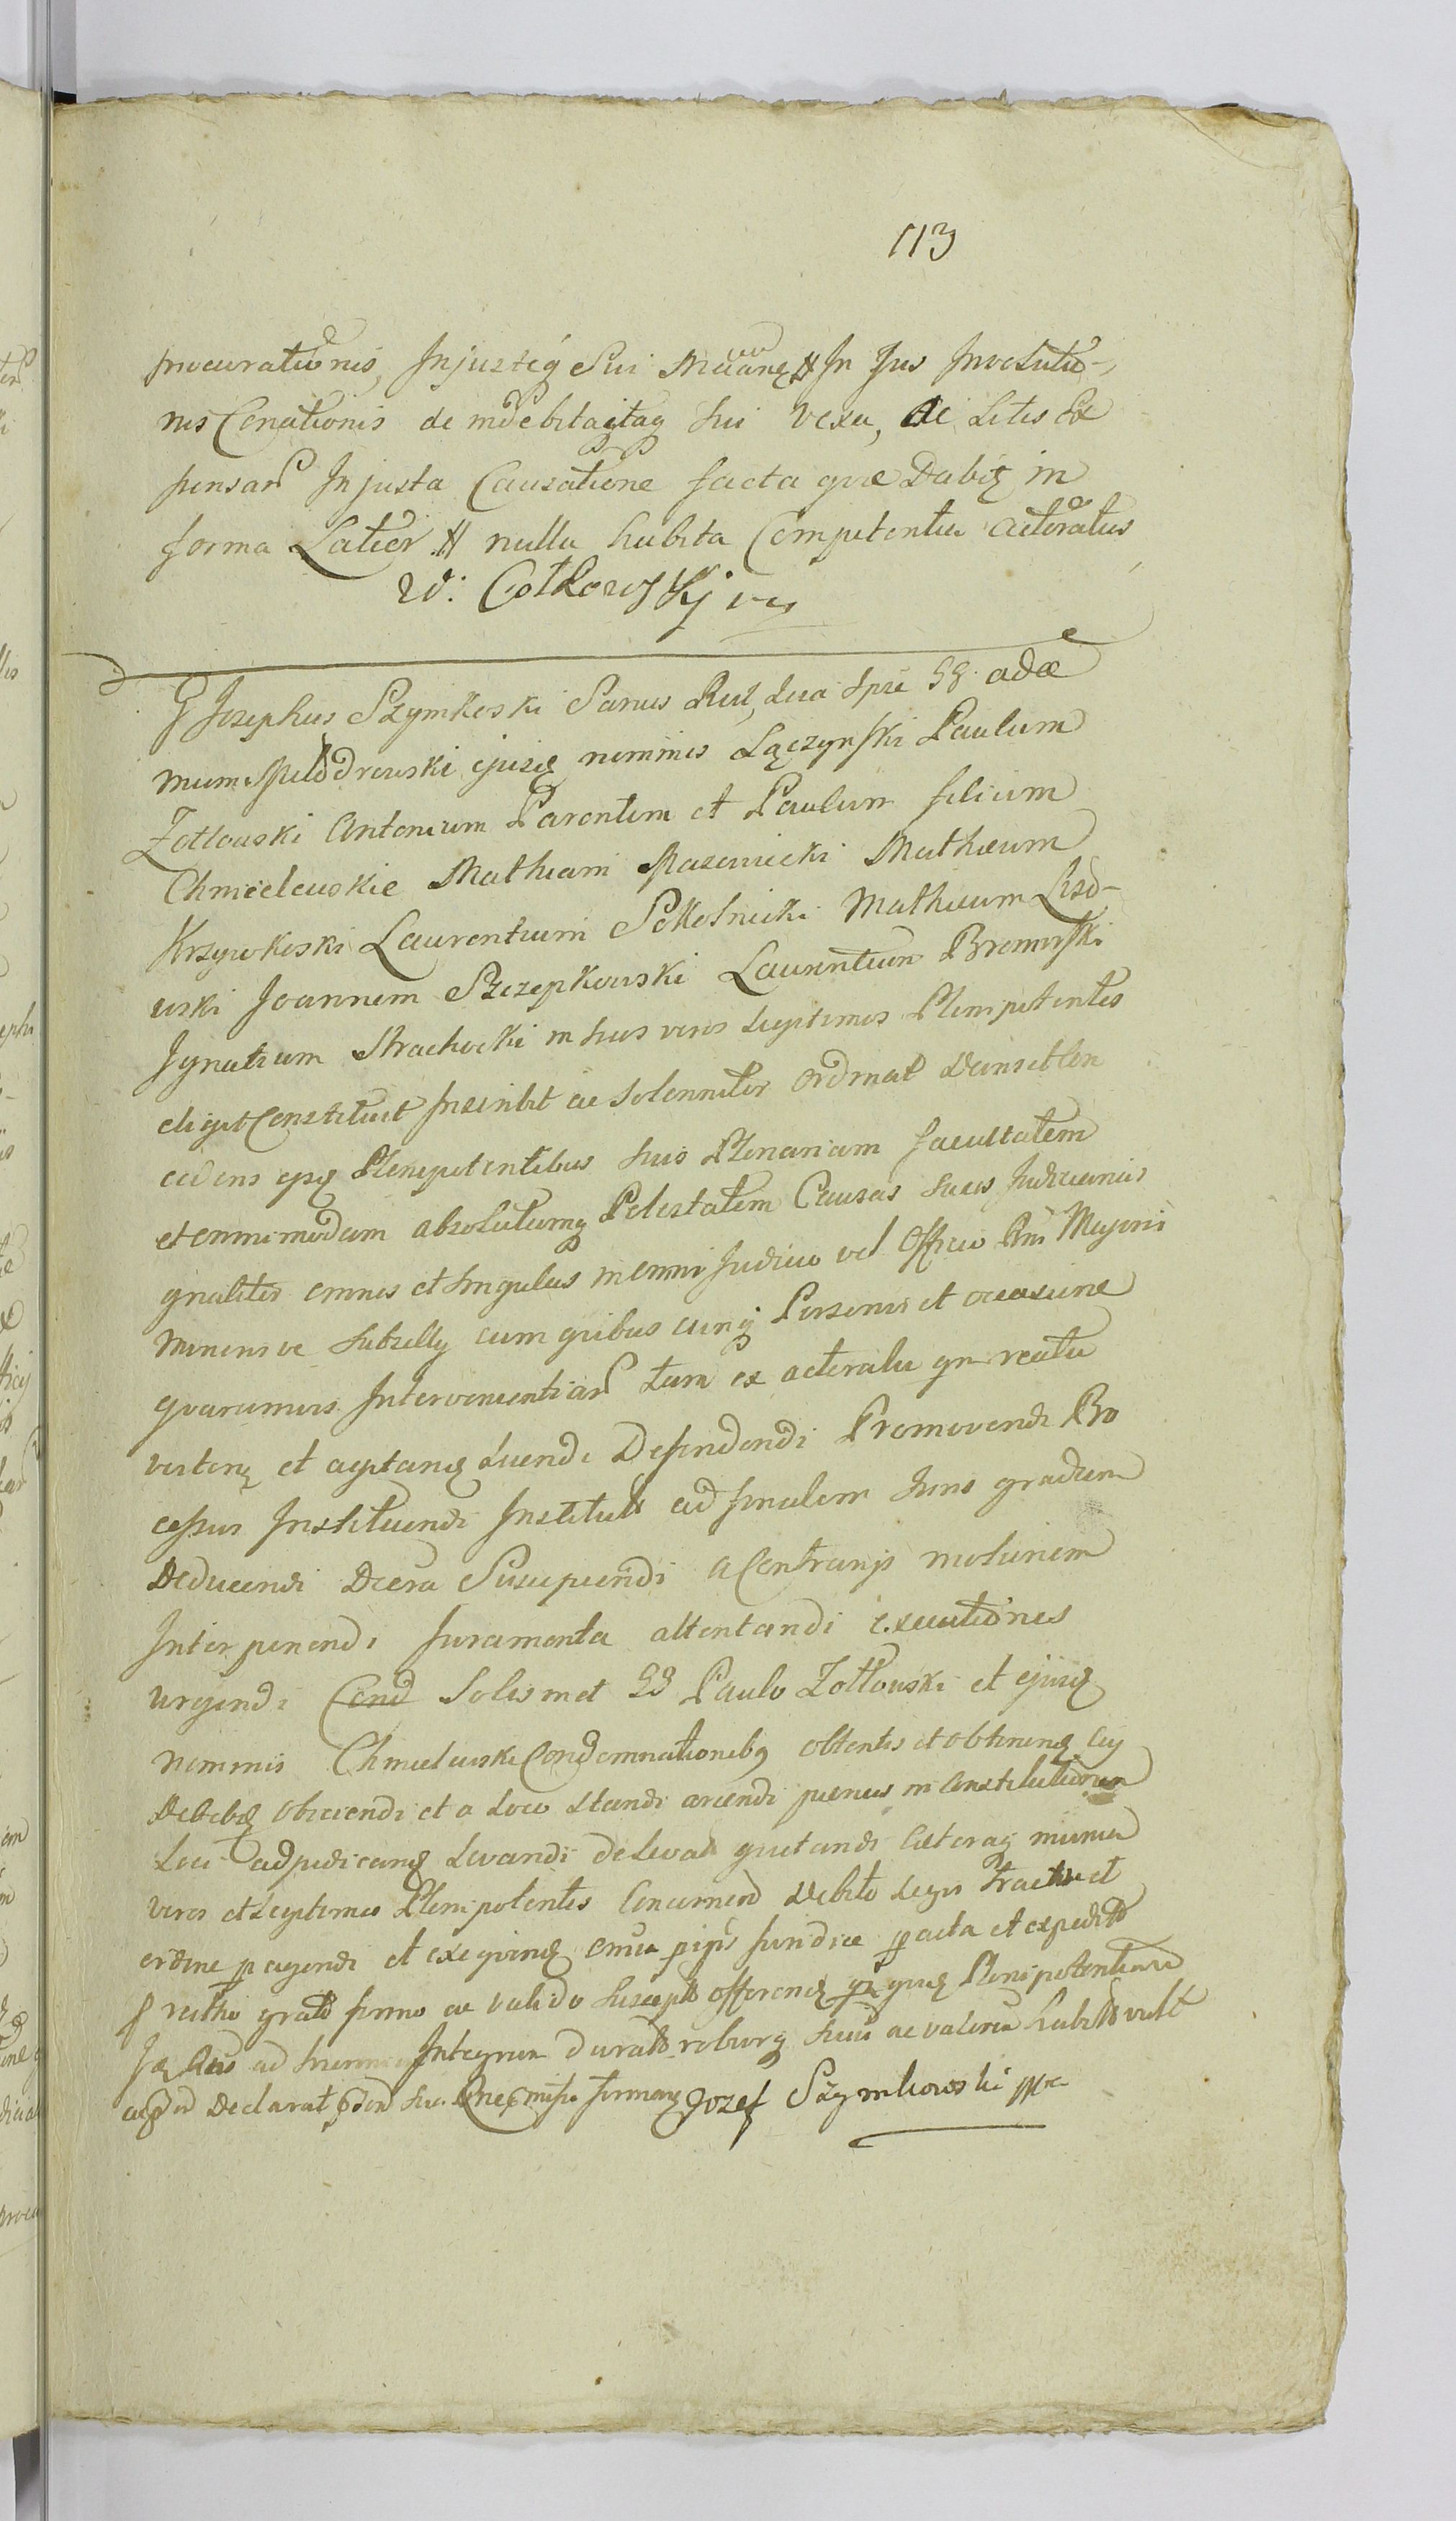 113
procurationis, Injusteq sui # In Jus Involutio-
nis de indebitaqtaq sui vexa, ac Litis Ex
pensar Injusta Causatione facta quæ Dabiz in
forma Latior # nulla habita Competentia actoratus
W: Cotkowskj
G Josephus Szymkoski Sanus Rel, sua spte GG adæ
mum Modrowski ejusq nominis Łączynski Paulum
Zołtowski Antonium Parentem et Paulum filium
Chmielewskie Mathiam Mazowiecki Matheum
Krzywkoski Laurentium Sokolnicki Mathæum Liso-
wski Joannem Szczepkowski Laurentium Bromirski
Ignatium Strachocki in suos veros Legitimos Plenipotentes
eligit Constituit Inscribit ac solenniter ordinat
cedens ejsq Plenipotentibus suis Plenariam facultatem
et omnimodam absolutamq Potestatem Causas suas Juridicas
gnaliter omnes et singulas in omni Judicio vel Officio Rni Majoris
Minoris ve Subselly cum quibus cunq Personis et occasione
quarumvis Intervenientiar tam ex actoratu qm reatu
verten et agitan Luendi Defendendi Promovendi Pro
cessus Instituendi Institut ad finalem Juris gradum
Deducendi Decra Suscipiendi a Contrarijs motionem
Interponendi Juramenta attentandi executiones
urgendi Cond Solismet GG Paulo Zołtowski et ejusq
nominis Chmielewski Condemnationibq obtentis et obtinen
Debebq obiiciendi et a Loco standi arcendi pœnas in Constitutionum
Loci adjudicanq Levandi de Levat quietandi Cæteraq munia
veros et Legitimos Plenipotentes Concernen debito Legis tractu et
ordine peragendi et exequendi omia pijs Juridice pacta et expedit
f ratho grato firmo ac valido suscept offerend Plenipotentiam
ad Integrum durat roburq suum ac valorem habit vult
Declarat Jozef Szymkowski mp